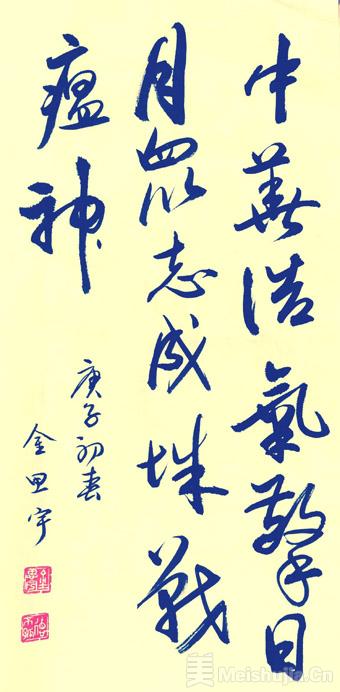 中華浩氣擎日
月眾志成城戰
瘟神
庚子初春
金思宇
美 Meishujia.Cn